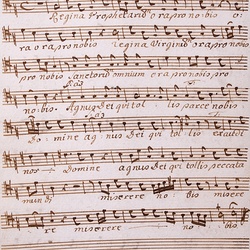 Regina Prophetarū ora pro nobis o:
ra ora pro nobis Regina Virginū ora pro nobis
pro nobis Sanctorū omnium ora pro nobis pro
nobis. Agnus Dei qui tol lis parce nobis
Do- mine ag nus Dei qui tol lis exaudi
nos Domine agnus Dei qui tollis peccata
mundj miserere no- bis misere
re miserere no- bis